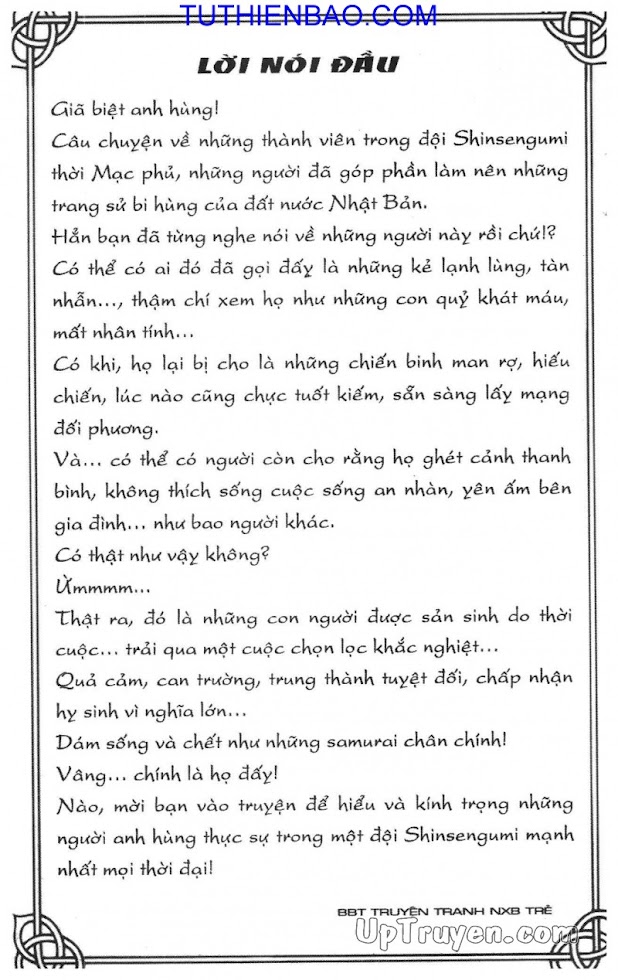 TUTHIENBAO.COM
TUTHIENBAO.COM
LỜI NÓI ĐẦU
Giã biệt anh hùng!
Câu chuyện về những thành viên trong đội Shinsengumi
thời Mạc phủ, những người đã góp phần làm nên những
trang sử bi hùng của đất nước Nhật Bản.
Hẳn bạn đã từng nghe nói về những người này rồi chứ!?
Có thể có ai đó đã gọi đấy là những kẻ lạnh lùng, tàn
nhẫn..., thậm chí xem họ như những con quỷ khát máu,
mất nhân tính...
Có khi, họ lại bị cho là những chiến binh man rợ, hiếu
chiến, lúc nào cũng chực tuốt kiếm, sẵn sàng lấy mạng
đối phương.
Và... có thể có người còn cho rằng họ ghét cảnh thanh
bình, không thích sống cuộc sống an nhàn, yên ấm bên
gia đình... như bao người khác.
Có thật như vậy không?
Ừmmmm...
Thật ra, đó là những con người được sản sinh do thời
cuộc... trải qua một cuộc chọn lọc khắc nghiệt...
Quả cảm, can trường, trung thành tuyệt đối, chấp nhận
hy sinh vì nghĩa lớn...
Dám sống và chết như những samurai chân chính!
Vâng... chính là họ đấy!
Nào, mời bạn vào truyện để hiểu và kính trọng những
người anh hùng thực sự trong một đội Shinsengumi mạnh
nhất mọi thời đại!
BBT TRUYỆN TRANH NXB TRẺ
UpTruyen.com